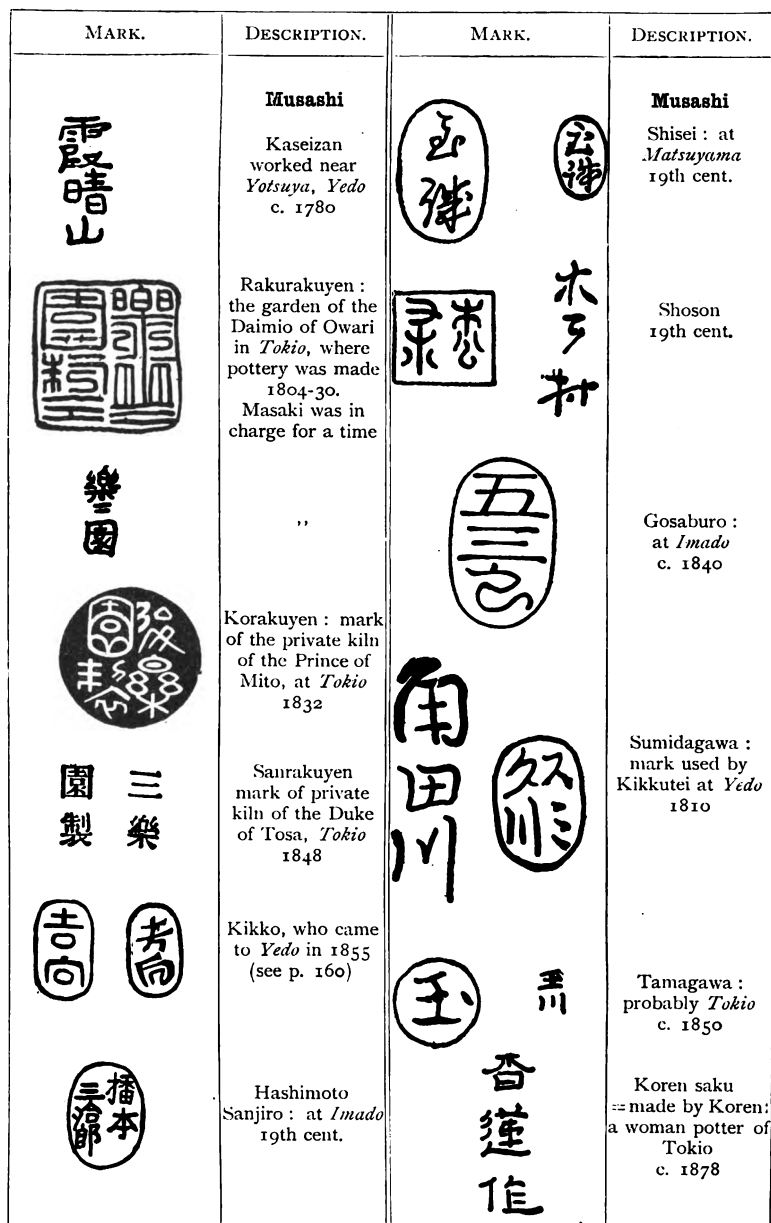 MARK.
DESCRIPTION.
Musashi
霞晴山
Kaseizan
worked near
Yotsuya, Yedo
c. 1780
Rakurakuyen :
the garden of the
Daimio of Owari
in Tokio, where
pottery was made
1804-30.
Masaki was in
charge for a time
,,
Korakuyen : mark
of the private kiln
of the Prince of
Mito, at Tokio
1832
三樂
園製
Sanrakuyen
mark of private
kiln of the Duke
of Tosa, Tokio
1848
吉向
Kikko, who came
to Yedo in 1855
(see p. 160)
Hashimoto
Sanjiro : at Imado
19th cent.
MARK.
DESCRIPTION.
Musashi
Shisei : at
Matsuyama
19th cent.
Shoson
19th cent.
Gosaburo :
at Imado
c. 1840
角田川
Sumidagawa :
mark used by
Kikkutei at Yedo
1810
玉
玉川
Tamagawa :
probably Tokio
c. 1850
香蓮作
Koren saku
=made by Koren:
a woman potter of
Tokio
c. 1878